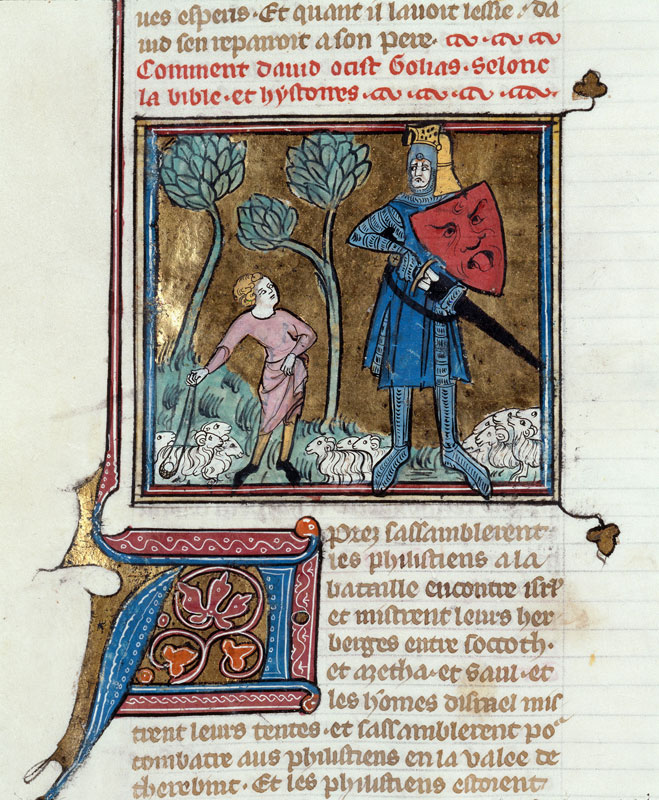 ues esperis · Et quant il lauoit lessie · da
uid sen repairoit a son pere ·
Comment dauid ocist Golias · Selonc
la bible · et hystoires ·
Aprez sassamblerent
les philistiens a la
bataille encontre isrl
et mistrent leurs her
berges entre soccoth ·
et azetha · et saul · et
les homes disrael mis
trent leurs tentes · et sassamblerent po
combatre aus philistiens en la valee de
therebint · Et les philistiens estoient